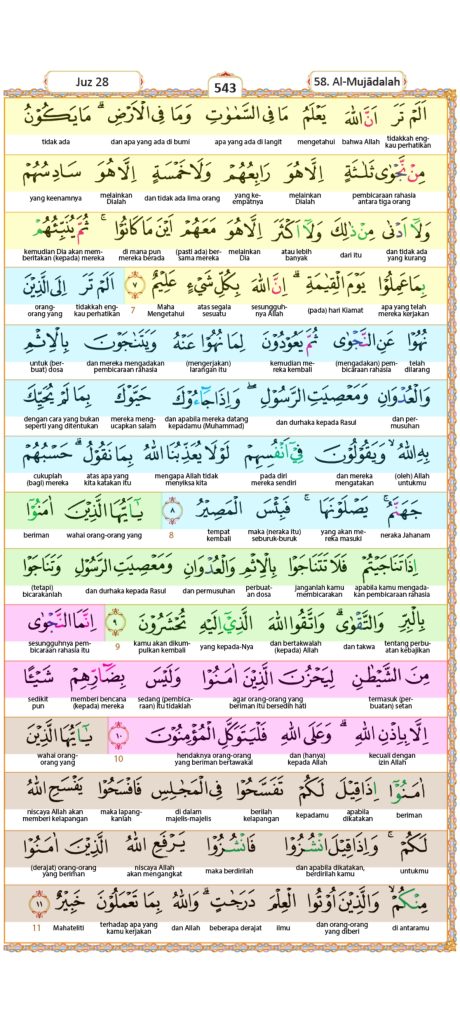 Juz 28
543
58. Al-Mujādalah
اَلَمْ تَرَ اَنَّ اللّٰهَ يَعْلَمُ مَا فِى السَّمٰوٰتِ وَمَا فِى الْاَرْضِۗ مَا يَكُوْنُ
tidakkah eng-kau perhatikan bahwa Allah mengetahui apa yang ada di langit dan apa yang ada di bumi tidak ada
مِنْ نَّجْوٰى ثَلٰثَةٍ اِلَّا هُوَ رَابِعُهُمْ وَلَا خَمْسَةٍ اِلَّا هُوَ سَادِسُهُمْ
pembicaraan rahasia antara tiga orang melainkan Dialah yang ke-empatnya dan tidak ada lima orang melainkan Dialah yang keenamnya
وَلَآ اَدْنٰى مِنْ ذٰلِكَ وَلَآ اَكْثَرَ اِلَّا هُوَ مَعَهُمْ اَيْنَ مَا كَانُوْاۚ ثُمَّ يُنَبِّئُهُمْ
dan tidak ada yang kurang dari itu atau lebih banyak melainkan Dia (pasti ada) ber-sama mereka di mana pun mereka berada kemudian Dia akan mem-beritakan (kepada) mereka
بِمَا عَمِلُوْا يَوْمَ الْقِيٰمَةِۗ اِنَّ اللّٰهَ بِكُلِّ شَيْءٍ عَلِيْمٌ ٧ اَلَمْ تَرَ اِلَى الَّذِيْنَ
apa yang telah mereka kerjakan (pada) hari Kiamat sesungguh-nya Allah atas segala sesuatu Maha Mengetahui 7 tidakkah eng-kau perhatikan orang-orang yang
نُهُوْا عَنِ النَّجْوٰى ثُمَّ يَعُوْدُوْنَ لِمَا نُهُوْا عَنْهُ وَيَتَنٰجَوْنَ بِالْاِثْمِ
telah dilarang (mengadakan) pem-bicaraan rahasia kemudian me-reka kembali (mengerjakan) larangan itu dan mereka mengadakan pembicaraan rahasia untuk (ber-buat) dosa
وَالْعُدْوَانِ وَمَعْصِيَتِ الرَّسُوْلِۖ وَاِذَا جَاۤءُوْكَ حَيَّوْكَ بِمَا لَمْ يُحَيِّكَ
dan per-musuhan dan durhaka kepada Rasul dan apabila mereka datang kepadamu (Muhammad) mereka meng-ucapkan salam dengan cara yang bukan seperti yang ditentukan
بِهِ اللّٰهُۙ وَيَقُوْلُوْنَ فِيْٓ اَنْفُسِهِمْ لَوْلَا يُعَذِّبُنَا اللّٰهُ بِمَا نَقُوْلُۗ حَسْبُهُمْ
(oleh) Allah untukmu dan mereka mengatakan pada diri mereka sendiri mengapa Allah tidak menyiksa kita atas apa yang kita katakan itu cukuplah (bagi) mereka
جَهَنَّمُۚ يَصْلَوْنَهَاۚ فَبِئْسَ الْمَصِيْرُ ٨ يٰٓاَيُّهَا الَّذِيْنَ اٰمَنُوْٓا
neraka Jahanam yang akan me-reka masuki maka (neraka itu) seburuk-buruk tempat kembali 8 wahai orang-orang yang beriman
اِذَا تَنَاجَيْتُمْ فَلَا تَتَنَاجَوْا بِالْاِثْمِ وَالْعُدْوَانِ وَمَعْصِيَتِ الرَّسُوْلِ وَتَنَاجَوْا
apabila kamu mengada-kan pembicaraan rahasia janganlah kamu membicarakan perbuat-an dosa dan permusuhan dan durhaka kepada Rasul (tetapi) bicarakanlah
بِالْبِرِّ وَالتَّقْوٰىۗ وَاتَّقُوا اللّٰهَ الَّذِيْٓ اِلَيْهِ تُحْشَرُوْنَ ٩ اِنَّمَا النَّجْوٰى
tentang perbu-atan kebajikan dan takwa dan bertakwalah (kepada) Allah yang kepada-Nya kamu akan dikum-pulkan kembali 9 sesungguhnya pem-bicaraan rahasia itu
مِنَ الشَّيْطٰنِ لِيَحْزُنَ الَّذِيْنَ اٰمَنُوْا وَلَيْسَ بِضَاۤرِّهِمْ شَيْـًٔا
termasuk (per-buatan) setan agar orang-orang yang beriman itu bersedih hati sedang (pembica-raan) itu tidaklah memberi bencana (kepada) mereka sedikit pun
اِلَّا بِاِذْنِ اللّٰهِۗ وَعَلَى اللّٰهِ فَلْيَتَوَكَّلِ الْمُؤْمِنُوْنَ ١٠ يٰٓاَيُّهَا الَّذِيْنَ
kecuali dengan izin Allah dan (hanya) kepada Allah hendaknya orang-orang yang beriman bertawakal 10 wahai orang-orang yang
اٰمَنُوْٓا اِذَا قِيْلَ لَكُمْ تَفَسَّحُوْا فِى الْمَجٰلِسِ فَافْسَحُوْا يَفْسَحِ اللّٰهُ
beriman apabila dikatakan kepadamu berilah kelapangan di dalam majelis-majelis maka lapang-kanlah niscaya Allah akan memberi kelapangan
لَكُمْۚ وَاِذَا قِيْلَ انْشُزُوْا فَانْشُزُوْا يَرْفَعِ اللّٰهُ الَّذِيْنَ اٰمَنُوْا
untukmu dan apabila dikatakan, berdirilah kamu maka berdirilah niscaya Allah akan mengangkat (derajat) orang-orang yang beriman
مِنْكُمْۙ وَالَّذِيْنَ اُوْتُوا الْعِلْمَ دَرَجٰتٍۗ وَاللّٰهُ بِمَا تَعْمَلُوْنَ خَبِيْرٌ ١١
di antaramu dan orang-orang yang diberi ilmu beberapa derajat dan Allah terhadap apa yang kamu kerjakan Mahateliti 11